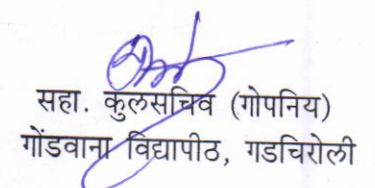 सहा. कुलसचिव (गोपनिय)
गोंडवाना विद्यापीठ, गडचिरोली